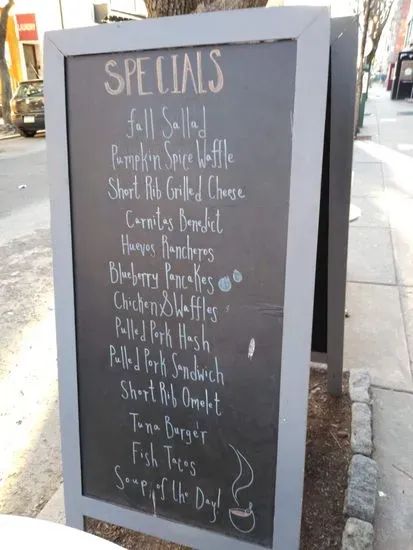 LAUNDRY
SPECIALS
fall Sallad
Pumpkin Spice Waffle
Short Rib Grilled Cheese
Carnitas Benedict
Huevos Rancheros
Blueberry Pancakes
Chicken & Waffles
Pulled Pork Hash
Pulled Pork Sandwich
Short Rib Omelet
Tuna Burger
Fish Tacos
Soup of the Day!